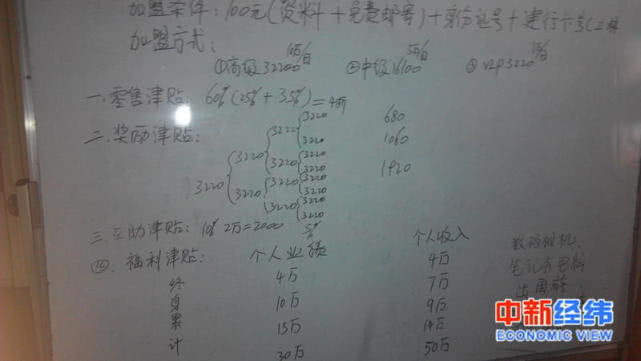 加盟条件：100元(资料+免费邮寄)+身份证号+建行卡号(
加盟方式：
①高级32200 ②中级16100 ③VIP3220
一.零售津贴：60%(25%+35%)=4折
二.奖励津贴：
3220 3220 3220 3220 680
3220 1060
3220 3220
3220 1420
3220 3220 3220
3220
3220 3220
3220
三.互助津贴：10% 2万=2000 5%
四.福利津贴： 个人业绩 个人收入 数码相机、
终 4万 4万 笔记本电脑
身 10万 7万 出国游
累 15万 9万
计 30万 14万
50万
中新经纬
ECONOMIC VIEW